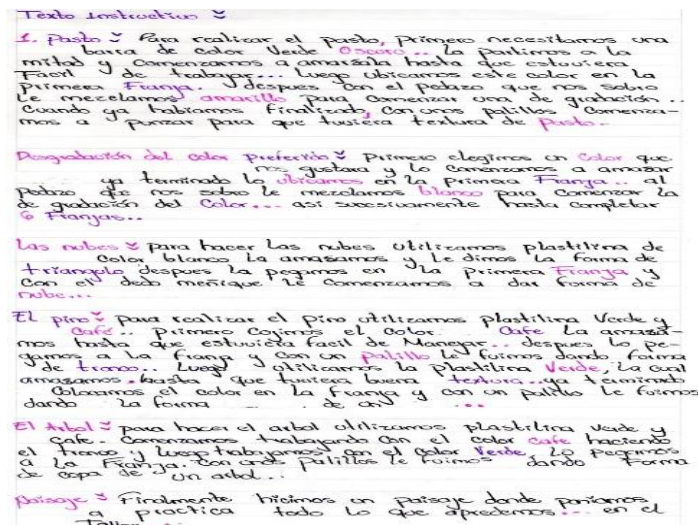 Texto Instructivo
1. Pasto Para realizar el pasto, Primero necesitamos una
barra de color Verde Oscuro.. La partimos a la
mitad y comenzamos a amasala hasta que estuviera
Facil de trabajar... Luego ubicamos este color en la
primera Franja. despues con el pedazo que nos sobro
Le mezclamos amarillo para comenzar una de gradación..
Cuando ya habiamos finalizado, con unos palillos Comenza-
mos a punzar para que tuviera textura de Pasto.
Desgradación del color preferido Primero elegimos un Color que
nos gustara y lo comenzamos a amazar
ya terminado lo ubicamos en la primera Franja.. al
pedazo que nos sobro le mezclamos blanco para comenzar la
de gradación del Color.... asi sucesivamente hasta completar
6 Franjas..
Las nubes para hacer Las nubes utilizamos plastilina de
Color blanco La amasamos y Le dimos la forma de
triangulo despues la pegamos en la primera Franja y
con el dedo meñique le comenzamos a dar forma de
nube...
El pino para realizar el Pino utilizamos plastilina Verde y
Café.. Primero Cojimos el color. Cafe La amasa-
mos hasta que estuviera facil de Manejar... despues lo pe-
gamos a La franja y con un Palillo le fuimos dando forma
de tronco.. Luego utilizamos la plastilina Verde, La cual
amasamos hasta que tuviera buena textura...ya terminado
Colocamos el color en La Franja y con un palillo Le fuimos
dando la forma de
El Arbol para hacer el arbol utilizamos plastilina verde y
Cafe. Comenzamos trabajando con el color cafe haciendo
el tronco y luego trabajamos con el color Verde. Lo pegamos
a La Franja. Con unos palillos le fuimos dando forma
de copa de un arbol...
paisaje Finalmente hicimos un paisaje donde poniamos
a practica todo lo que apredemos... en el
Taller